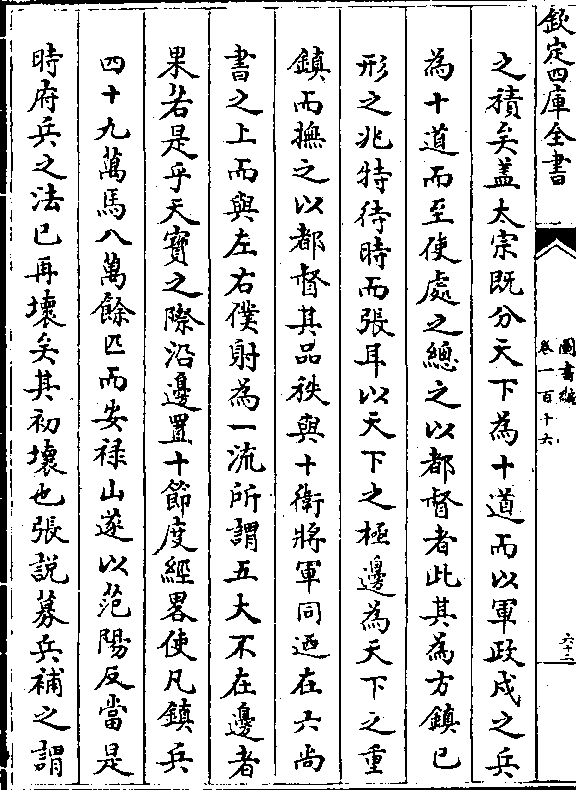 欽定四庫全書
圖書編
卷一百十六
六十二
之積矣盖太宗既分天下為十道而以軍政戍之兵
為十道而至使處之總之以都督者此其為方鎮已
形之兆特待時而張耳以天下之極邊為天下之重
鎮而撫之以都督其品秩與十衛將軍同迺在六尚
書之上而與左右僕射為一流所謂五大不在邊者
果若是乎天寳之際沿邊置十節度經畧使凡鎮兵
四十九萬馬八萬餘匹而安禄山遂以范陽反當是
時府兵之法已再壞矣其初壞也張説募兵補之謂